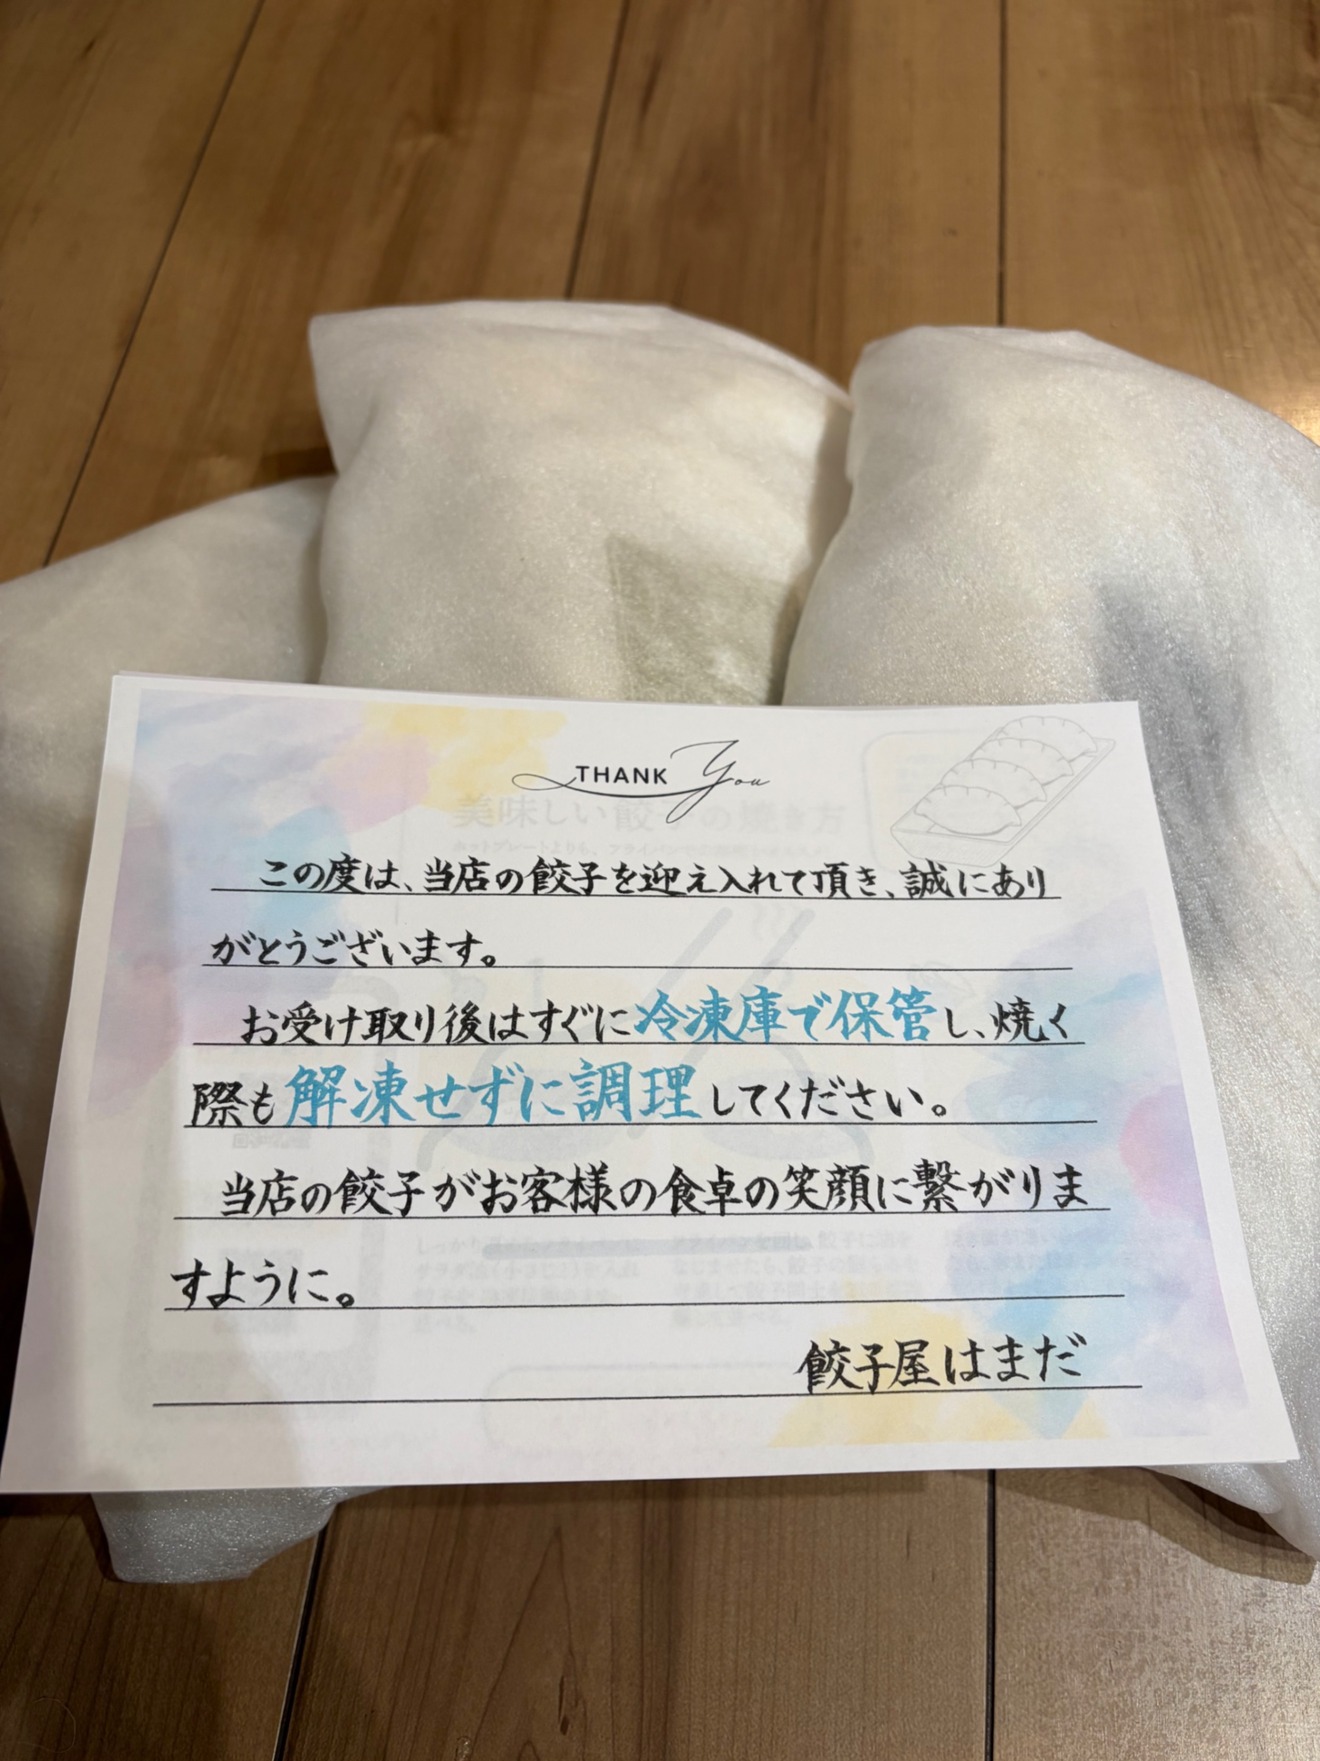 THANK You
美味しい餃子の焼き方
この度は、当店の餃子を迎え入れて頂き、誠にあり
がとうございます。
お受け取り後はすぐに冷凍庫で保管し、焼く
際も解凍せずに調理してください。
当店の餃子がお客様の食卓の笑顔に繋がりま
すように。
餃子屋はまだ